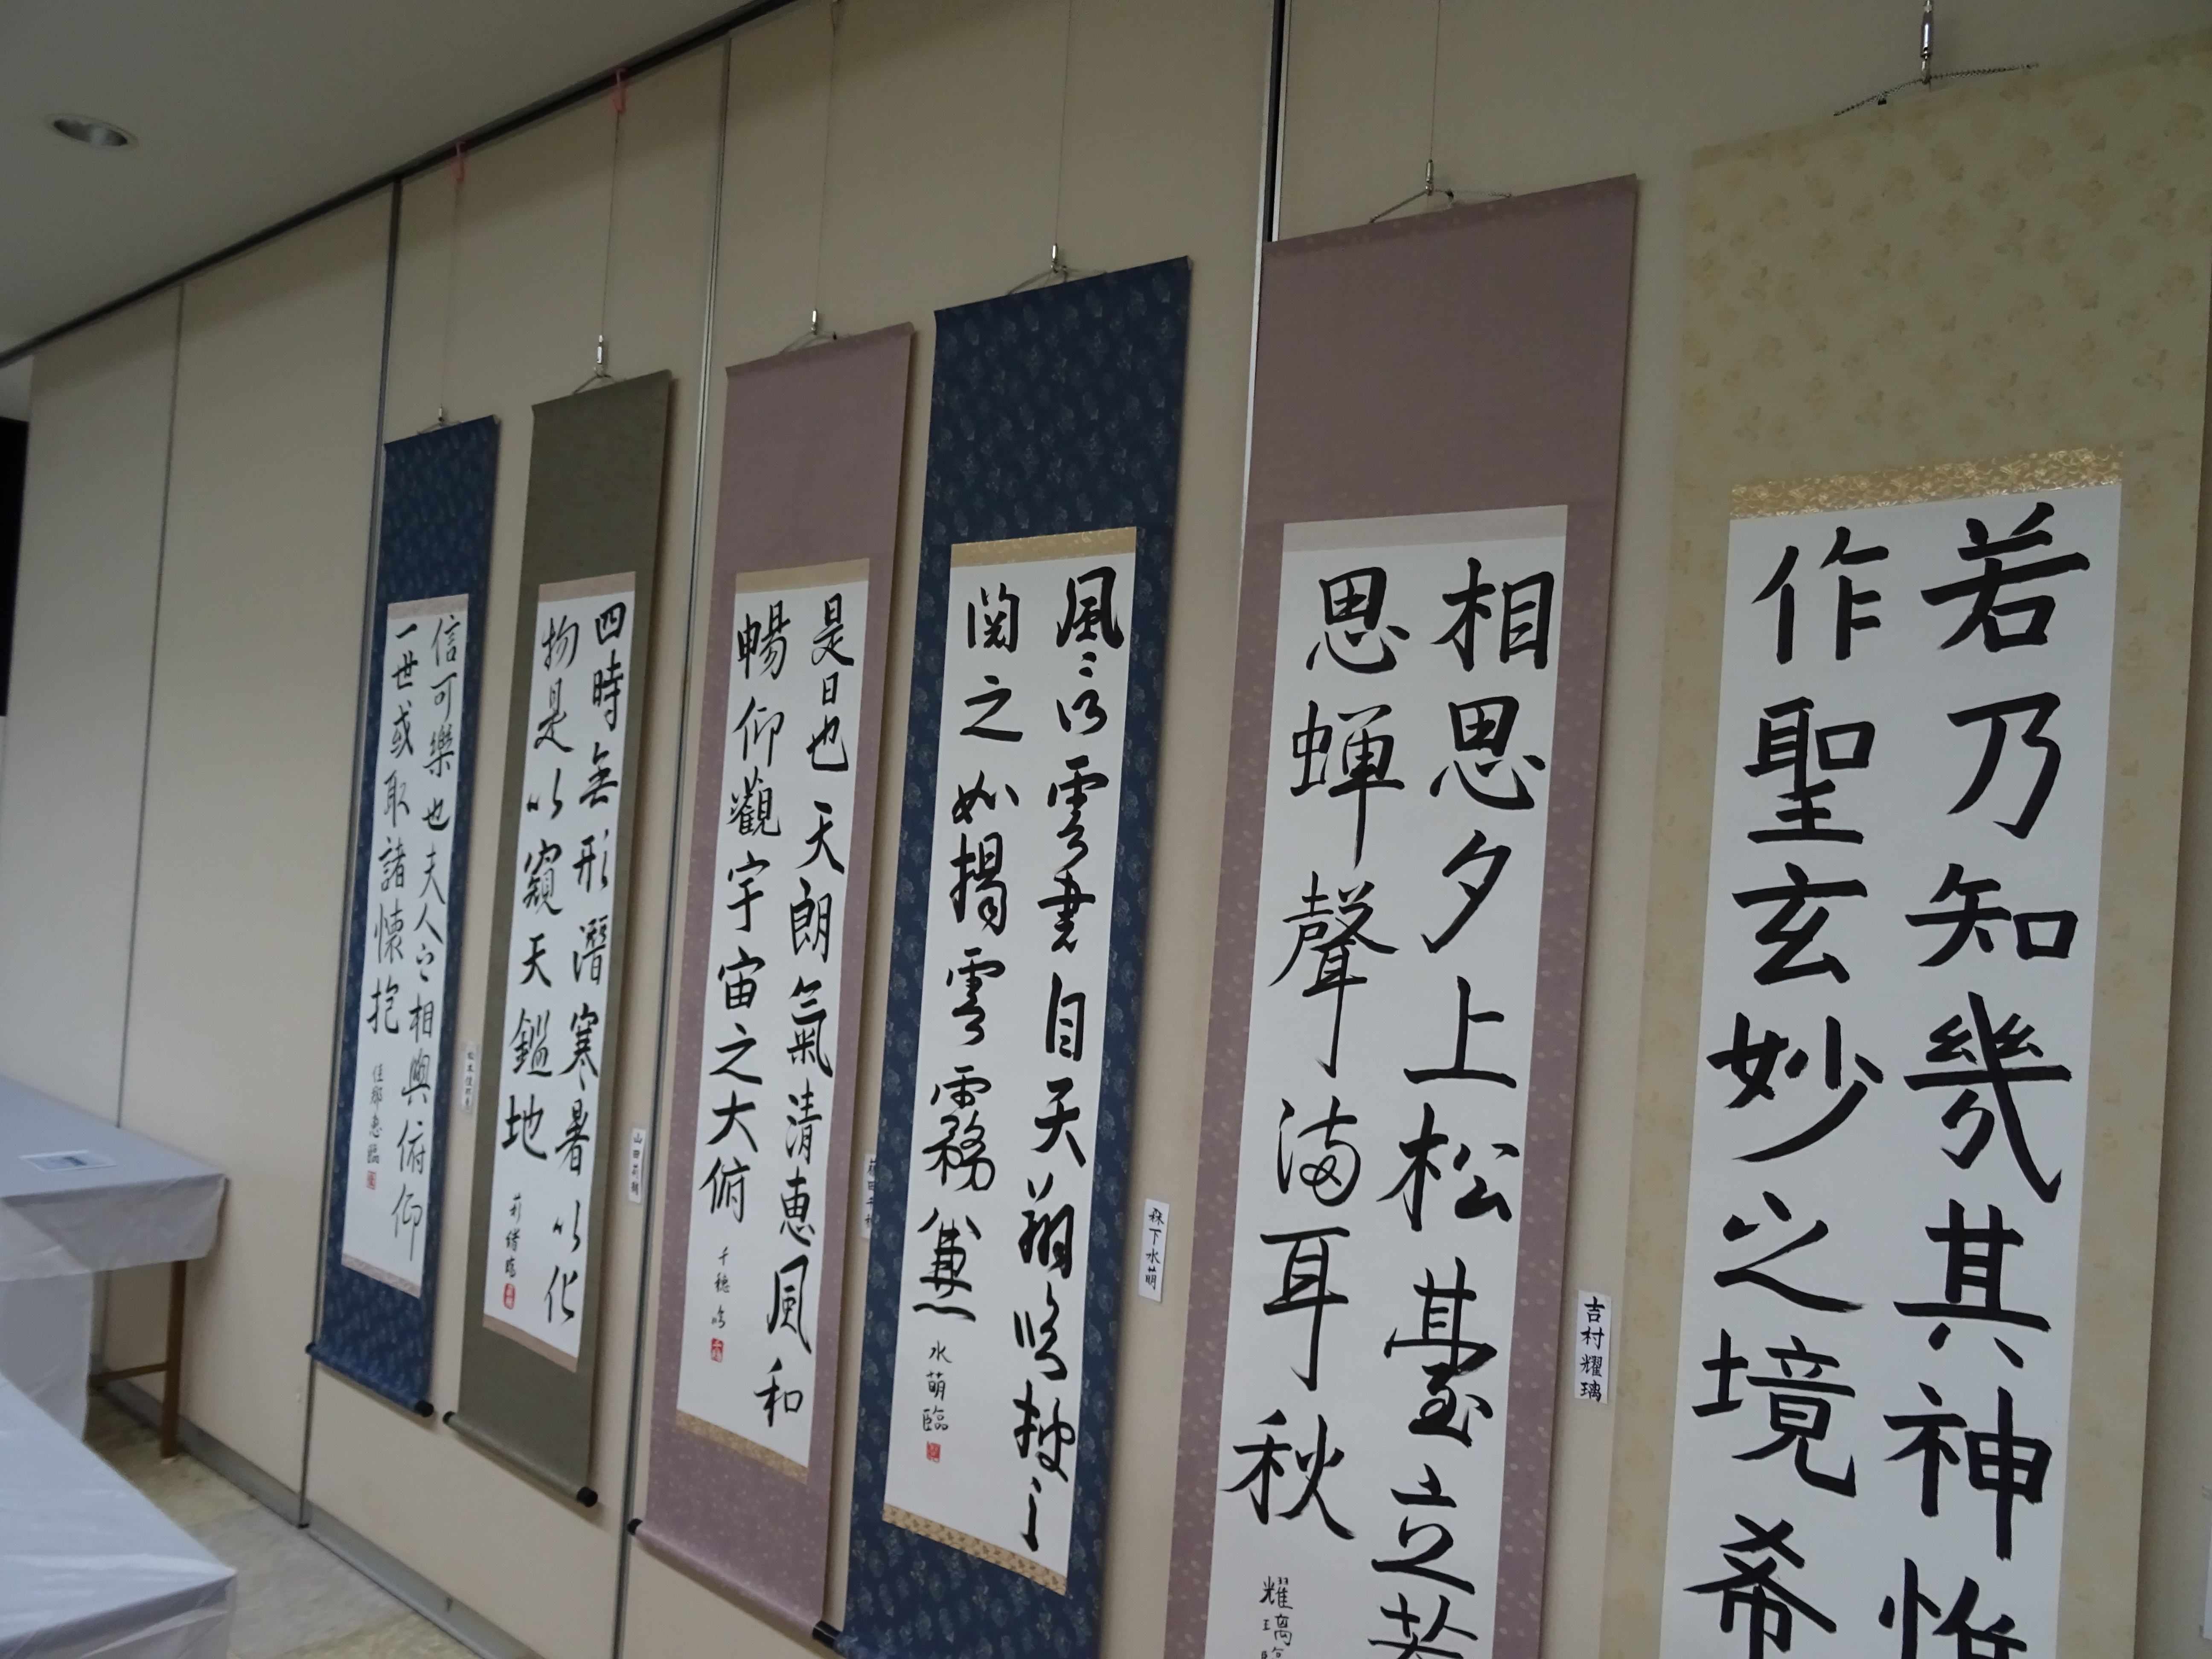 若乃知幾其神惟
作聖玄妙之境希
相思夕上松臺立
思蝉聲満耳秋
耀璃
吉村耀璃
風信雲書自天翔臨披之
閲之如揭雲霧兼
水萌臨
森下水萌
是日也天朗氣清恵風和
暢仰觀宇宙之大俯
千穂臨
四時無形潛寒暑以化
物是以窺天鑑地
莉緒臨
山田莉緒
信可樂也夫人之相與俯仰
一世或取諸懐抱
佳那恵臨